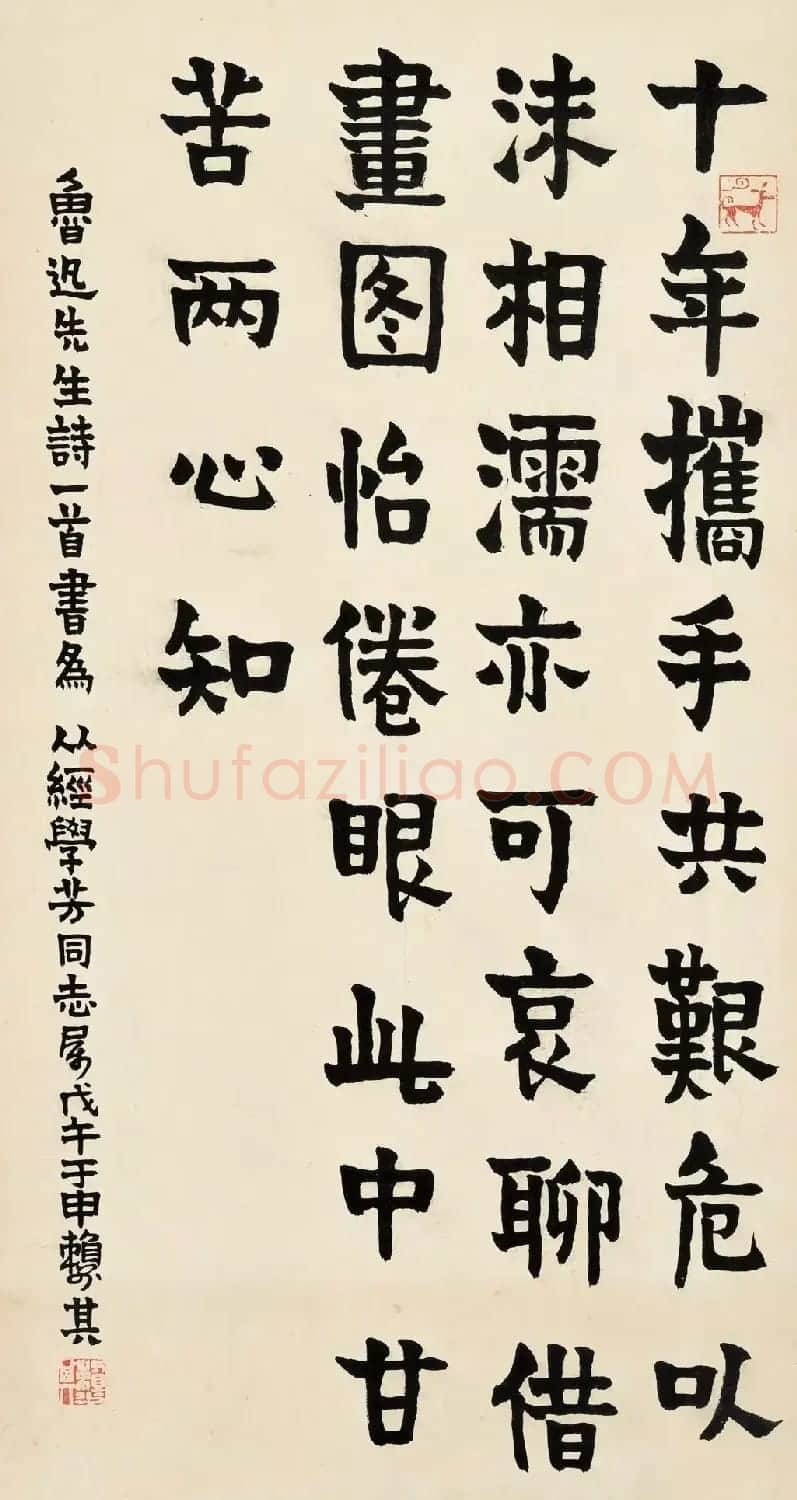 十年攜手共艱危以
沫相濡亦可哀聊借
畫图怡倦眼此中甘
苦两心知
魯迅先生詩一首書為 从經學芳同志属戊午于申賴少其
Shufaziliao.COM